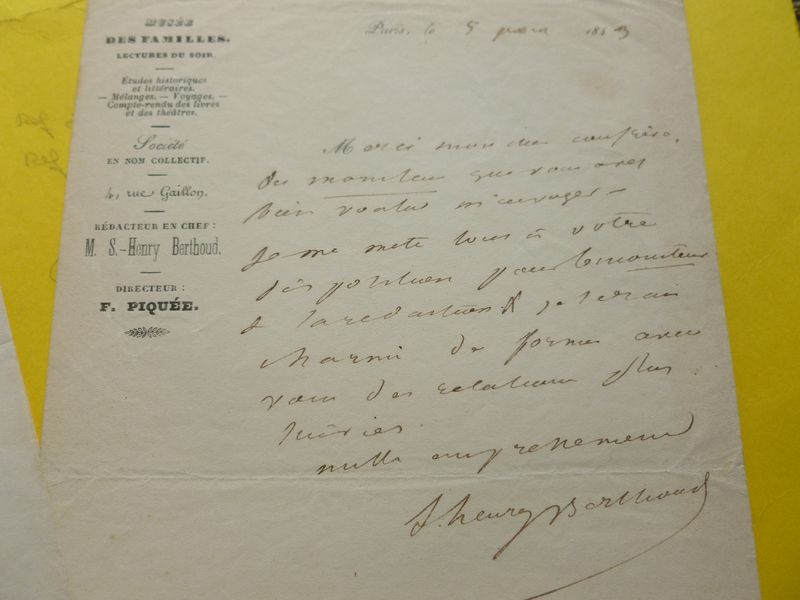 MUSÉE
DES FAMILLES.
LECTURES DU SOIR
Études historiques
et littéraires.
— Mélanges. — Voyages. —
Compte-rendu des livres
et des théâtres.
Société
EN NOM COLLECTIF.
4, rue Gaillon.
RÉDACTEUR EN CHEF:
M. S.-Henry Berthoud.
DIRECTEUR:
F. PIQUÉE.
Paris, le 5 184
Merci mon cher confrère,
du moniteur que vous avez
bien voulu m'envoyer –
Je me mets tout à votre
disposition pour le moniteur
& la rédaction & je serais
charmé de former avec
vous des relations plus
suivies.
mille empressements
S. henry Berthoud